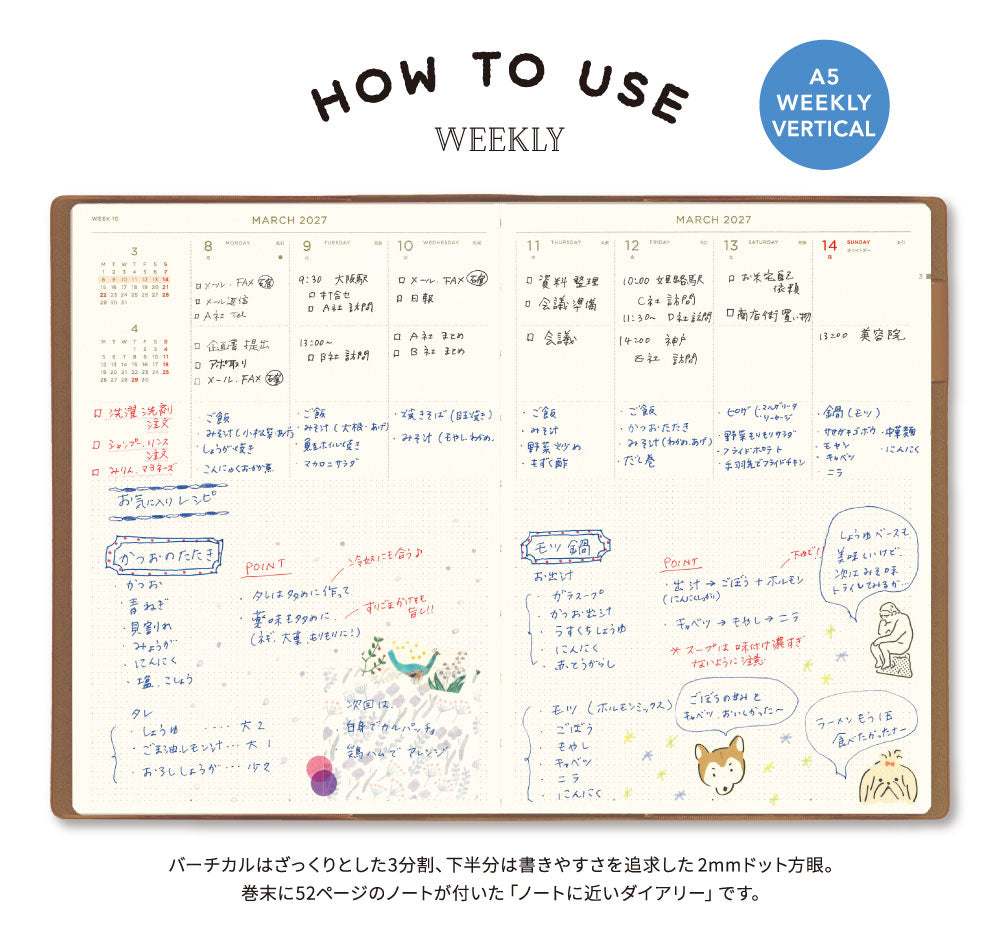 HOW TO USE
WEEKLY
A5
WEEKLY
VERTICAL
WEEK 10
MARCH 2027
MARCH 2027
3
M T W T F S S
1 2 3 4 5 6 7
8 9 10 11 12 13 14
15 16 17 18 19 20 21
22 23 24 25 26 27 28
29 30 31
4
M T W T F S S
1 2 3 4
5 6 7 8 9 10 11
12 13 14 15 16 17 18
19 20 21 22 23 24 25
26 27 28 29 30
8 MONDAY
月
メール・FAX 確
メール返信
A社 Tel
企画書 提出
アポ取り
メール・FAX 確
9 TUESDAY
火
9:30 大阪駅
打合せ
A社 訪問
13:00〜
B社 訪問
10 WEDNESDAY
水
メール・FAX 確
日報
A社 まとめ
B社 まとめ
11 THURSDAY
木
資料整理
会議準備
会議
12 FRIDAY
金
10:00 姫路駅
C社 訪問
11:30〜 D社訪問
14:00 神戸
E社 訪問
13 SATURDAY
土
お米宅配
依頼
商店街買い物
14 SUNDAY
日 ホワイトデー
13:00 美容院
3
洗濯洗剤
注文
シャンプー.リンス
注文
みりん.マヨネーズ
・ご飯
・みそ汁(小松菜・あげ)
・しょうが焼き
・こんにゃくおかか煮
・ご飯
・みそ汁(大根・あげ)
・魚ホイル焼き
・マカロニサラダ
・焼きそば(目玉焼き)
・みそ汁(もやしわかめ.
・ご飯
・みそ汁
・野菜炒め
・もずく酢
・ご飯
・かつおたたき
・みそ汁(わかめ.あげ)
・だし巻
・ピザ(・マルゲリータ
・ソーセージ
・野菜モリモリサラダ
・フライドポテト
・手羽先でフライドチキン
・鍋(モツ)
・ササガキゴボウ ・中華麺
・モヤシ ・にんにく
・キャベツ
・ニラ
お気に入りレシピ
かつおのたたき
・かつお
・青ねぎ
・貝割れ
・みょうが
・にんにく
・塩.こしょう
タレ
・しょうゆ……大2
・ごま油.レモン汁…大1
・おろししょうが…小2
POINT
冷奴にも合う♪
・タレは多めに作って
・薬味も多めに
(ネギ、大葉、もりもりに!)
すりごまかけても
旨し!!
次回は
・白身でカルパッチョ
・鶏ハムで アレンジ
モツ鍋
お出汁
・ガラスープ
・かつお出汁
・うすくちしょうゆ
・にんにく
・赤とうがらし
・モツ(ホルモンミックス)
・ごぼう
・もやし
・キャベツ
・ニラ
・にんにく
POINT
・出汁→ごぼう+ホルモン
(にんにくしっかり)
・キャベツ→もやし→ニラ
※スープは味付け濃すぎ
ないように注意
しょうゆベースも
美味しいけど、
次はみそ味
トライしてみるか…
ごぼうの甘みと
キャベツ.おいしかった〜
ラーメンもう1玉
食べたかったナー
バーチカルはざっくりとした3分割、下半分は書きやすさを追求した2mmドット方眼。
巻末に52ページのノートが付いた「ノートに近いダイアリー」です。